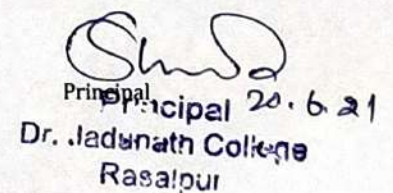 Principal
Principal 20.6.21
Dr. Jadunath College
Rasalpur